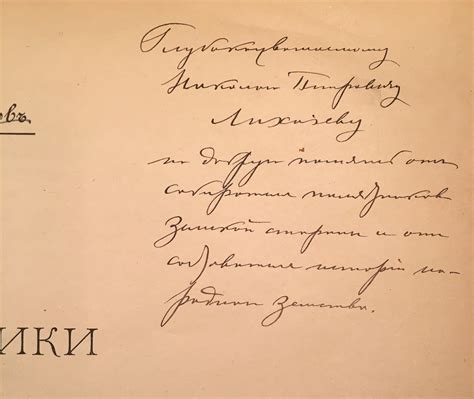 Глубокоуважаемому
Николаю Петровичу
Лихачеву
на добрую память отъ
собирателя памятников
Земской старины и отъ
исторіи на-
родного
овъ
ИКИ